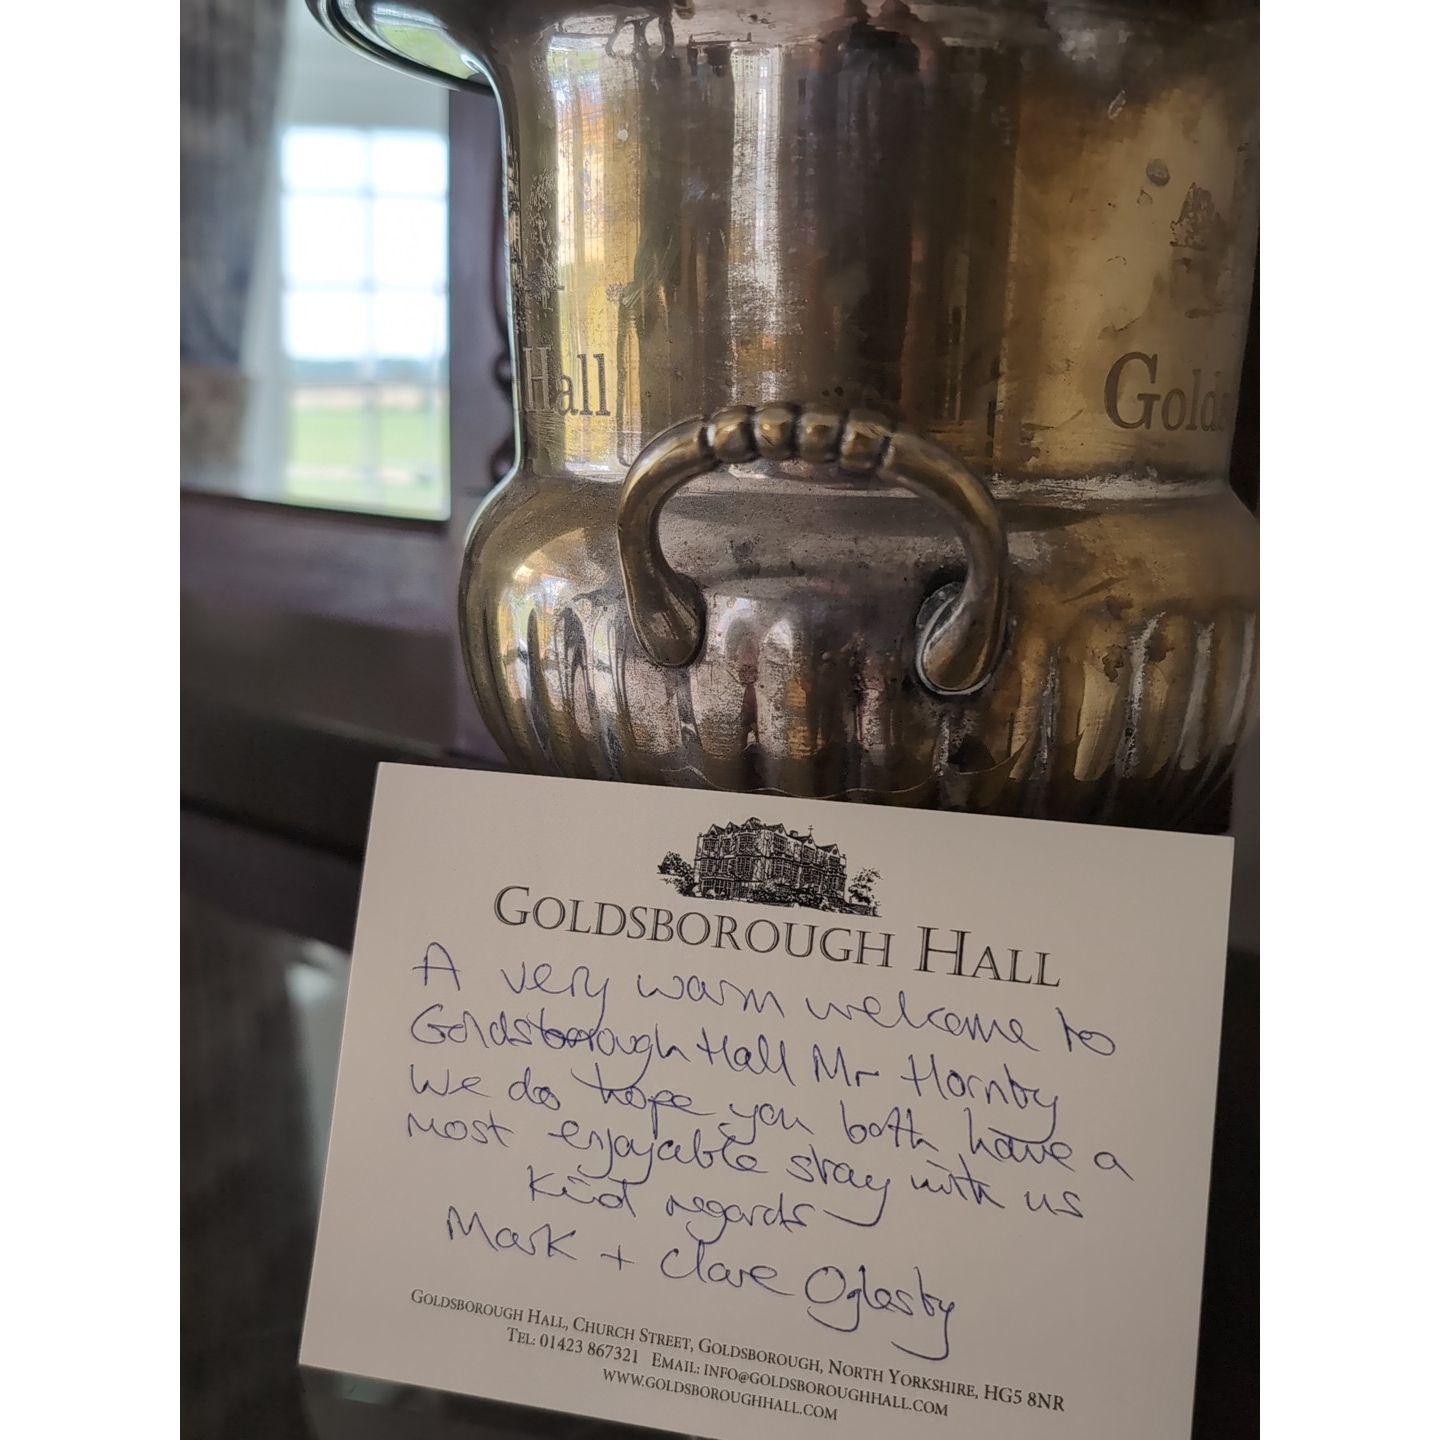 Hall
Golds
GOLDSBOROUGH HALL
A very warm welcome to
Goldsborough Hall Mr Hornby
We do hope you both have a
most enjoyable stay with us
Kind regards
Mark + Clare Oglesby
GOLDSBOROUGH HALL, CHURCH STREET, GOLDSBOROUGH, NORTH YORKSHIRE, HG5 8NR
TEL: 01423 867321 EMAIL: INFO@GOLDSBOROUGHHALL.COM
WWW.GOLDSBOROUGHHALL.COM